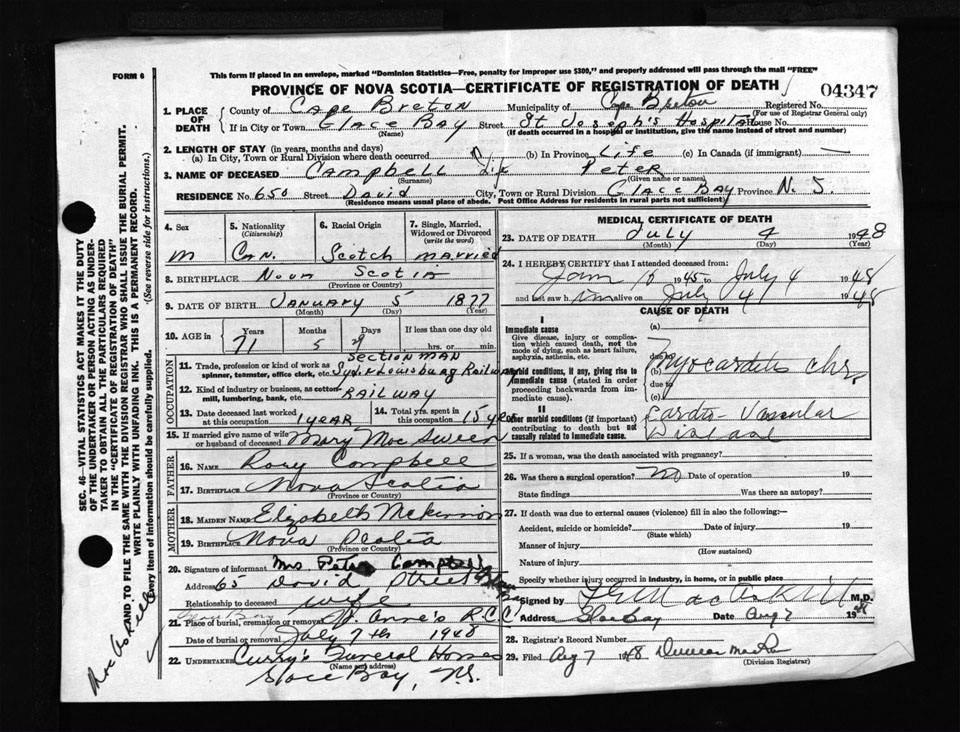 FORM 6
This form if placed in an envelope, marked "Dominion Statistics—Free, penalty for improper use $300," and properly addressed will pass through the mail "FREE"
PROVINCE OF NOVA SCOTIA—CERTIFICATE OF REGISTRATION OF DEATH
04347
1. PLACE OF DEATH
County of Cape Breton Municipality of Cape Breton Registered No.
(For use of Registrar General only)
If in City or Town Glace Bay Street St Joseph's Hospital House No.
(Name) (If death occurred in a hospital or institution, give the name instead of street and number)
2. LENGTH OF STAY (in years, months and days)
(a) In City, Town or Rural Division where death occurred Life (b) In Province Life (c) In Canada (if immigrant) —
3. NAME OF DECEASED Campbell Peter
(Surname) (Given name or names)
RESIDENCE No. 650 Street David City, Town or Rural Division Glace Bay Province N. S.
(Residence means usual place of abode. Post Office Address for residents in rural parts not sufficient)
4. Sex 5. Nationality (Citizenship) 6. Racial Origin 7. Single, Married, Widowed or Divorced (write the word)
M Can. Scotch Married
8. BIRTHPLACE Nova Scotia
(Province or Country)
9. DATE OF BIRTH January 5 1877
(Month) (Day) (Year)
10. AGE in Years Months Days If less than one day old
71 5 29 hrs. or min.
OCCUPATION
11. Trade, profession or kind of work as spinner, teamster, office clerk, etc. Section Man Syd & Louisburg Railway
12. Kind of industry or business, as cotton-mill, lumbering, bank, etc. Railway
13. Date deceased last worked at this occupation 1 year 14. Total yrs. spent in this occupation 15 yrs
15. If married give name of wife or husband of deceased Mary MacSween
FATHER
16. NAME Rory Campbell
17. BIRTHPLACE Nova Scotia
(Province or Country)
MOTHER
18. MAIDEN NAME Elizabeth McKinnon
19. BIRTHPLACE Nova Scotia
(Province or Country)
20. Signature of informant Mrs. Peter Campbell
Address 65 David Street
Relationship to deceased wife
21. Place of burial, cremation or removal St. Anne's R.C.C
Date of burial or removal July 7th 1948
22. UNDERTAKER Curry's Funeral Homes
(Name and address)
Glace Bay, N.S.
MEDICAL CERTIFICATE OF DEATH
23. DATE OF DEATH July 4 1948
(Month) (Day) (Year)
24. I HEREBY CERTIFY that I attended deceased from:
Jan 10 1945 to July 4 1948
and last saw him alive on July 4 1948
CAUSE OF DEATH
I
Immediate cause
Give disease, injury or complication which caused death, not the mode of dying, such as heart failure, asphyxia, asthenia, etc.
(a)
due to
Morbid conditions, if any, giving rise to immediate cause (stated in order proceeding backwards from immediate cause).
(b) Myocarditis chr.
due to
(c)
II
Other morbid conditions (if important) contributing to death but not causally related to immediate cause.
Cardio-Vascular
Disease
25. If a woman, was the death associated with pregnancy?
26. Was there a surgical operation? No Date of operation 19
State findings Was there an autopsy?
27. If death was due to external causes (violence) fill in also the following:—
Accident, suicide or homicide? Date of injury 19
(State which)
Manner of injury
(How sustained)
Nature of injury
Specify whether injury occurred in industry, in home, or in public place
Signed by M.D.
Address Glace Bay Date Aug 7 1948
28. Registrar's Record Number
29. Filed Aug 7 1948 Duncan
(Division Registrar)
SEC. 46—VITAL STATISTICS ACT MAKES IT THE DUTY OF THE UNDERTAKER OR PERSON ACTING AS UNDERTAKER TO OBTAIN ALL THE PARTICULARS REQUIRED IN THE "CERTIFICATE OF REGISTRATION OF DEATH" AND TO FILE THE SAME WITH THE DIVISION REGISTRAR WHO SHALL ISSUE THE BURIAL PERMIT.
WRITE PLAINLY WITH UNFADING INK. THIS IS A PERMANENT RECORD.
Every item of information should be carefully supplied. (See reverse side for instructions.)